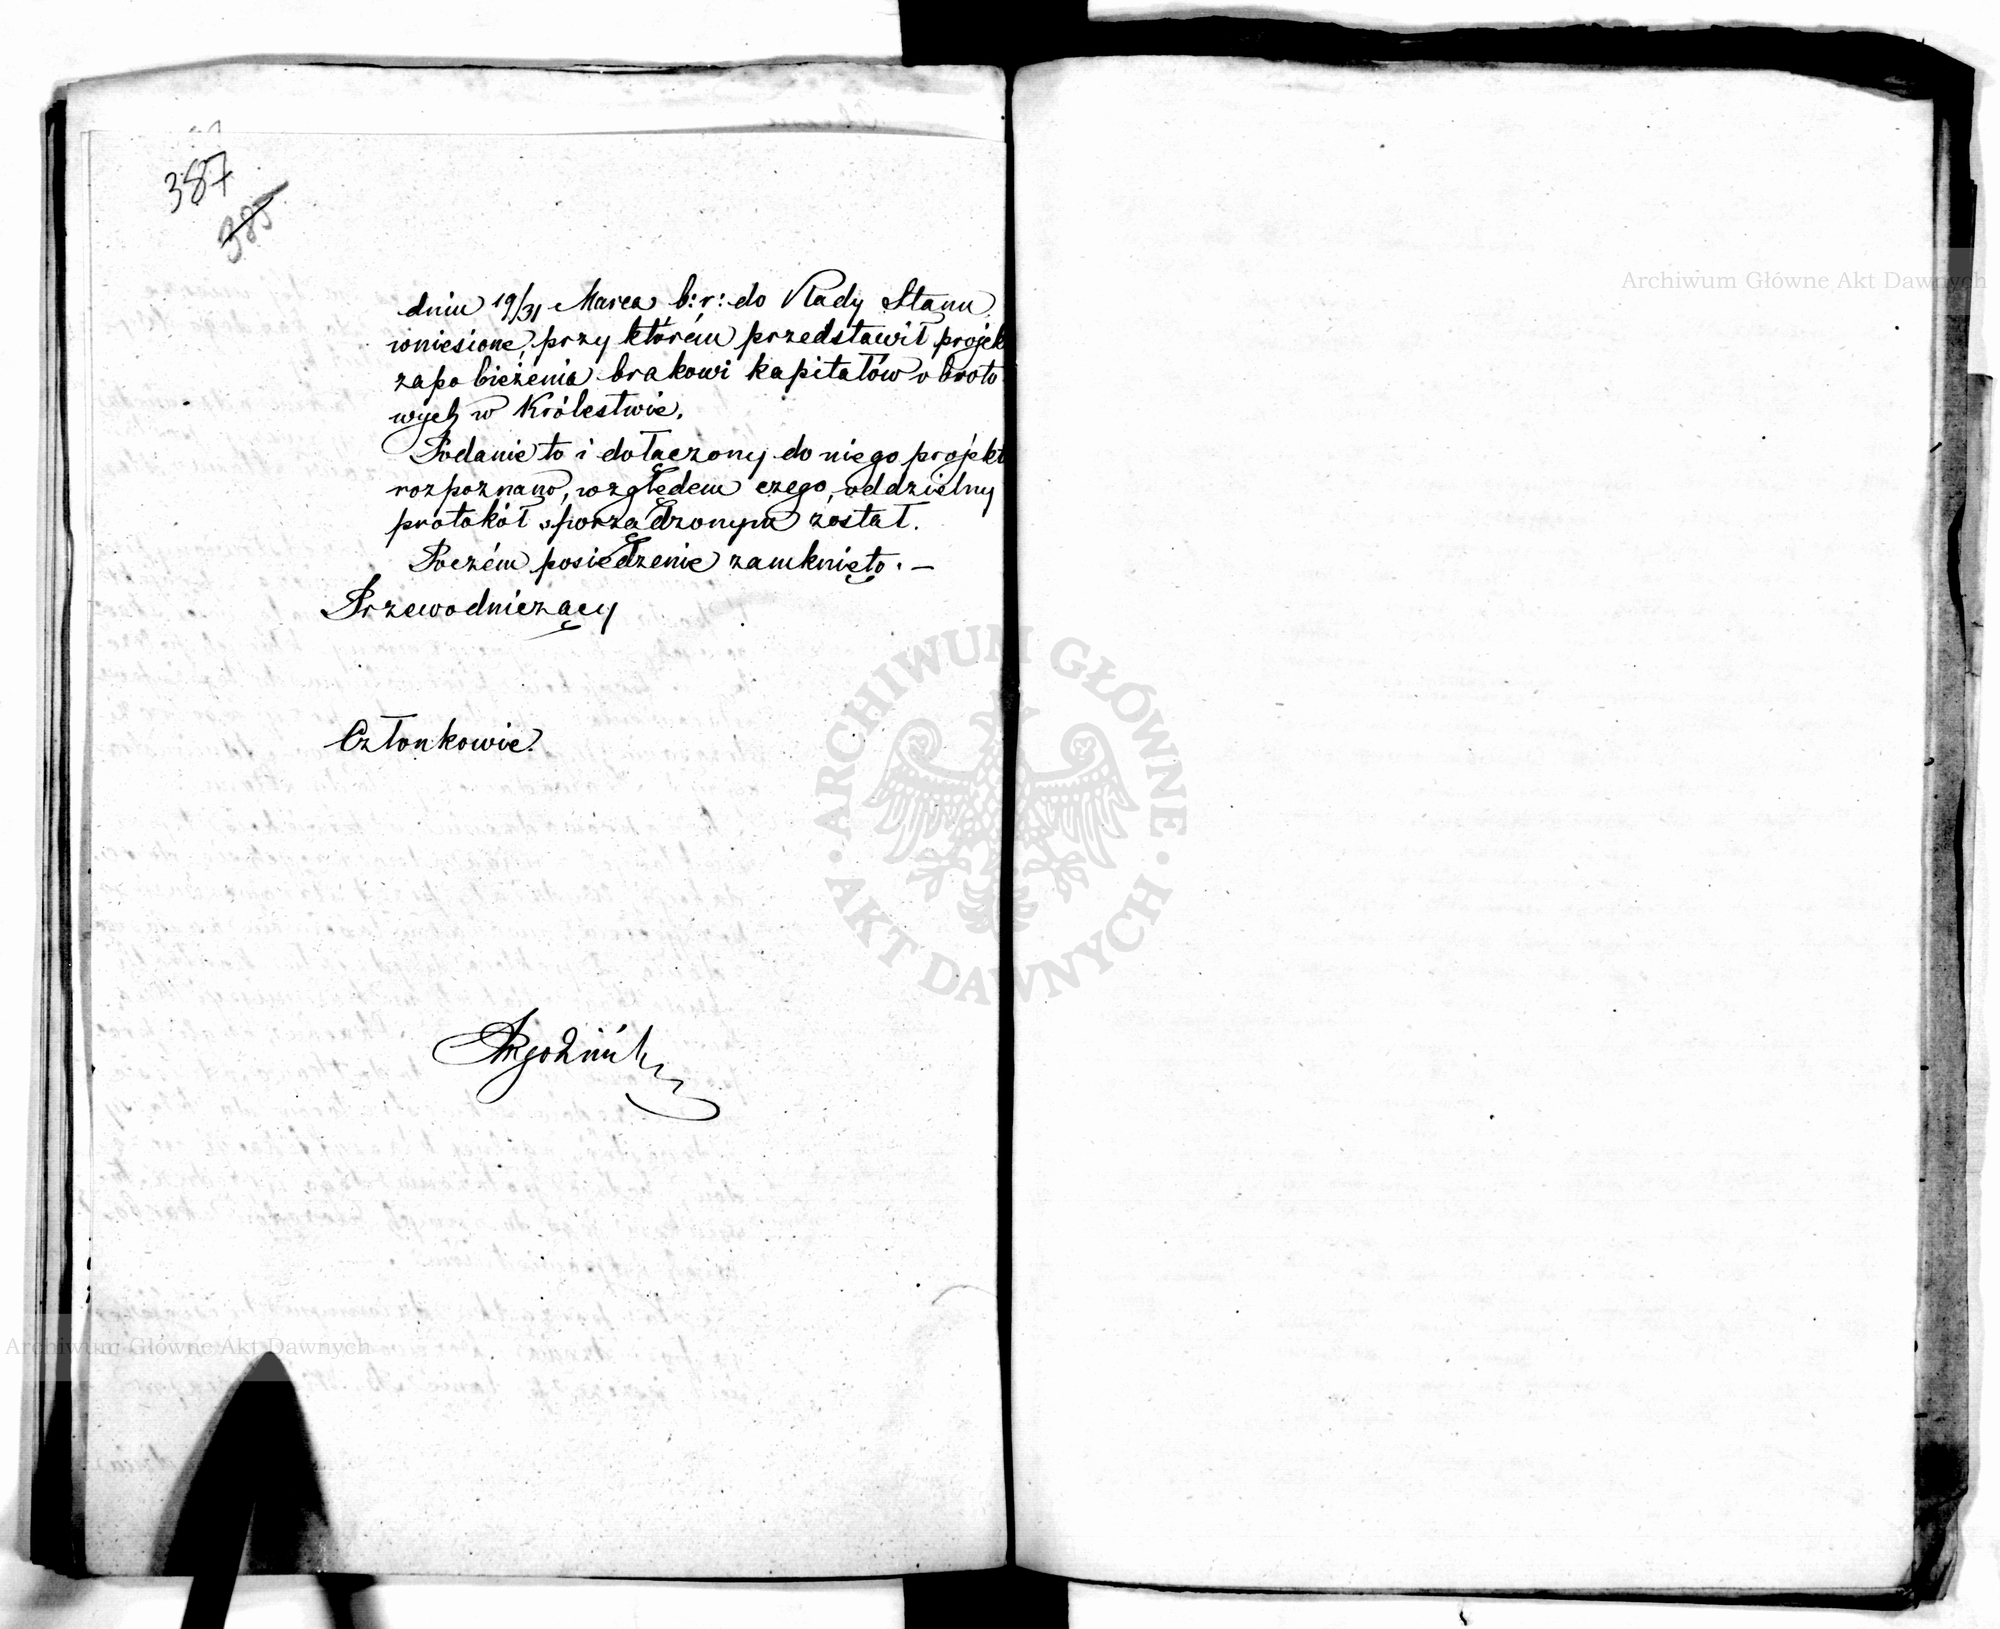 387
385
dniu 19/31 Marca b:r: do Rady Stanu
wniesione, przy którém przedstawił projek
zapobieżenia brakowi kapitałów obroto
wych w Królestwie.
Podanie to i dołączony do niego projekt
rozpoznano, względem czego, oddzielny
protokół sporządzonym został.
Poczém posiedzenie zamknięto. —
Przewodniczący
Członkowie.
Archiwum Główne Akt Dawnych
ARCHIWUM GŁÓWNE
AKT DAWNYCH
Archiwum Główne Akt Dawnych